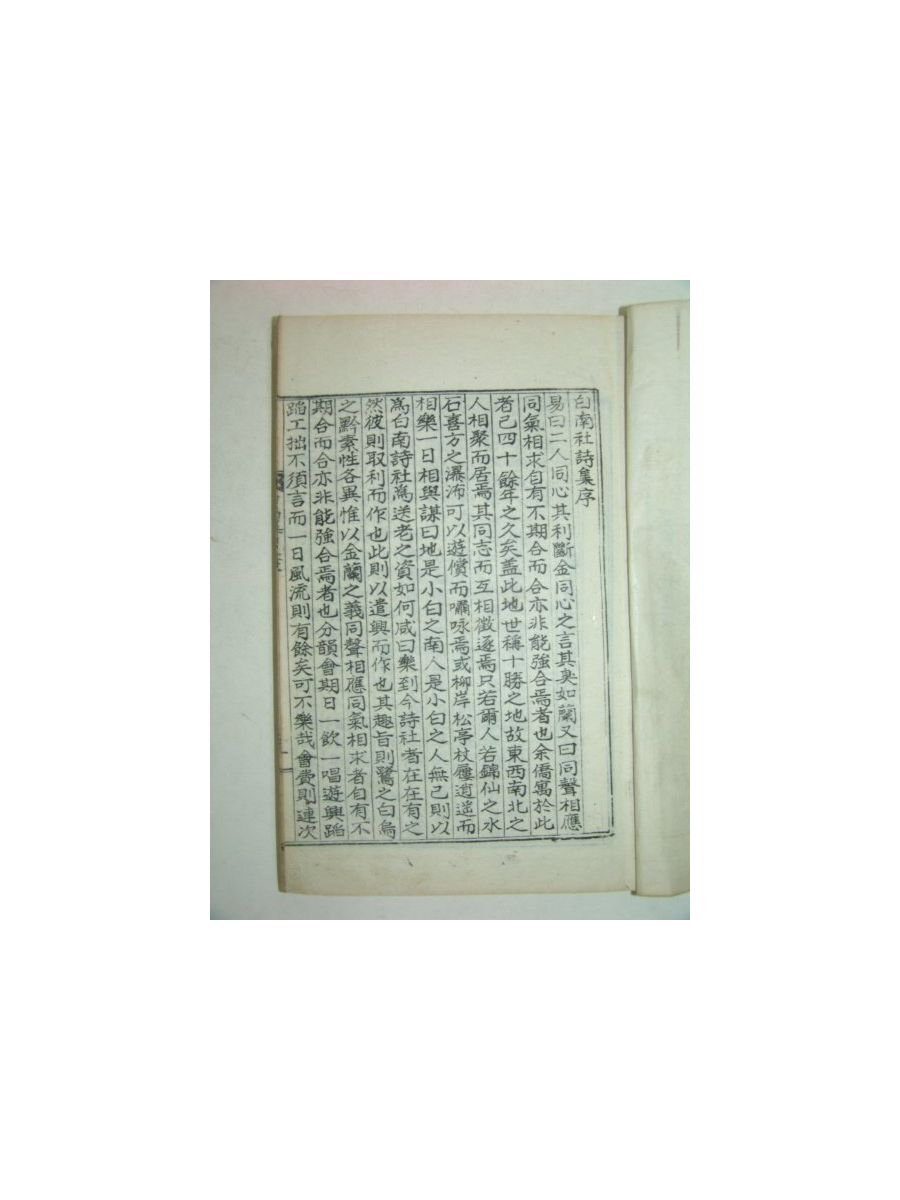 白南社詩集序
易曰二人同心其利斷金同心之言其臭如蘭又曰同聲相應
同氣相求自有不期合而合亦非能強合焉者也余僑寓於此
者已四十餘年之久矣蓋此地世稱十勝之地故東西南北之
人相聚而居焉其同志而互相徵逐焉只若爾人若錦仙之水
石喜方之瀑沛可以遊償而嘯咏焉或柳岸松亭杖屨逍遙而
相樂一日相與謀曰地是小白之南人是小白之人無已則以
爲白南詩社爲送老之資如何咸曰樂到今詩社者在在有之
然彼則取利而作也此則以遣興而作也其趣旨則鷺之白烏
之黔素性各異惟以金蘭之義同聲相應同氣相求者自有不
期合而合亦非能強合焉者也分韻會期日一飮一唱遊興蹈
蹈工拙不須言而一日風流則有餘矣可不樂哉會費則連次